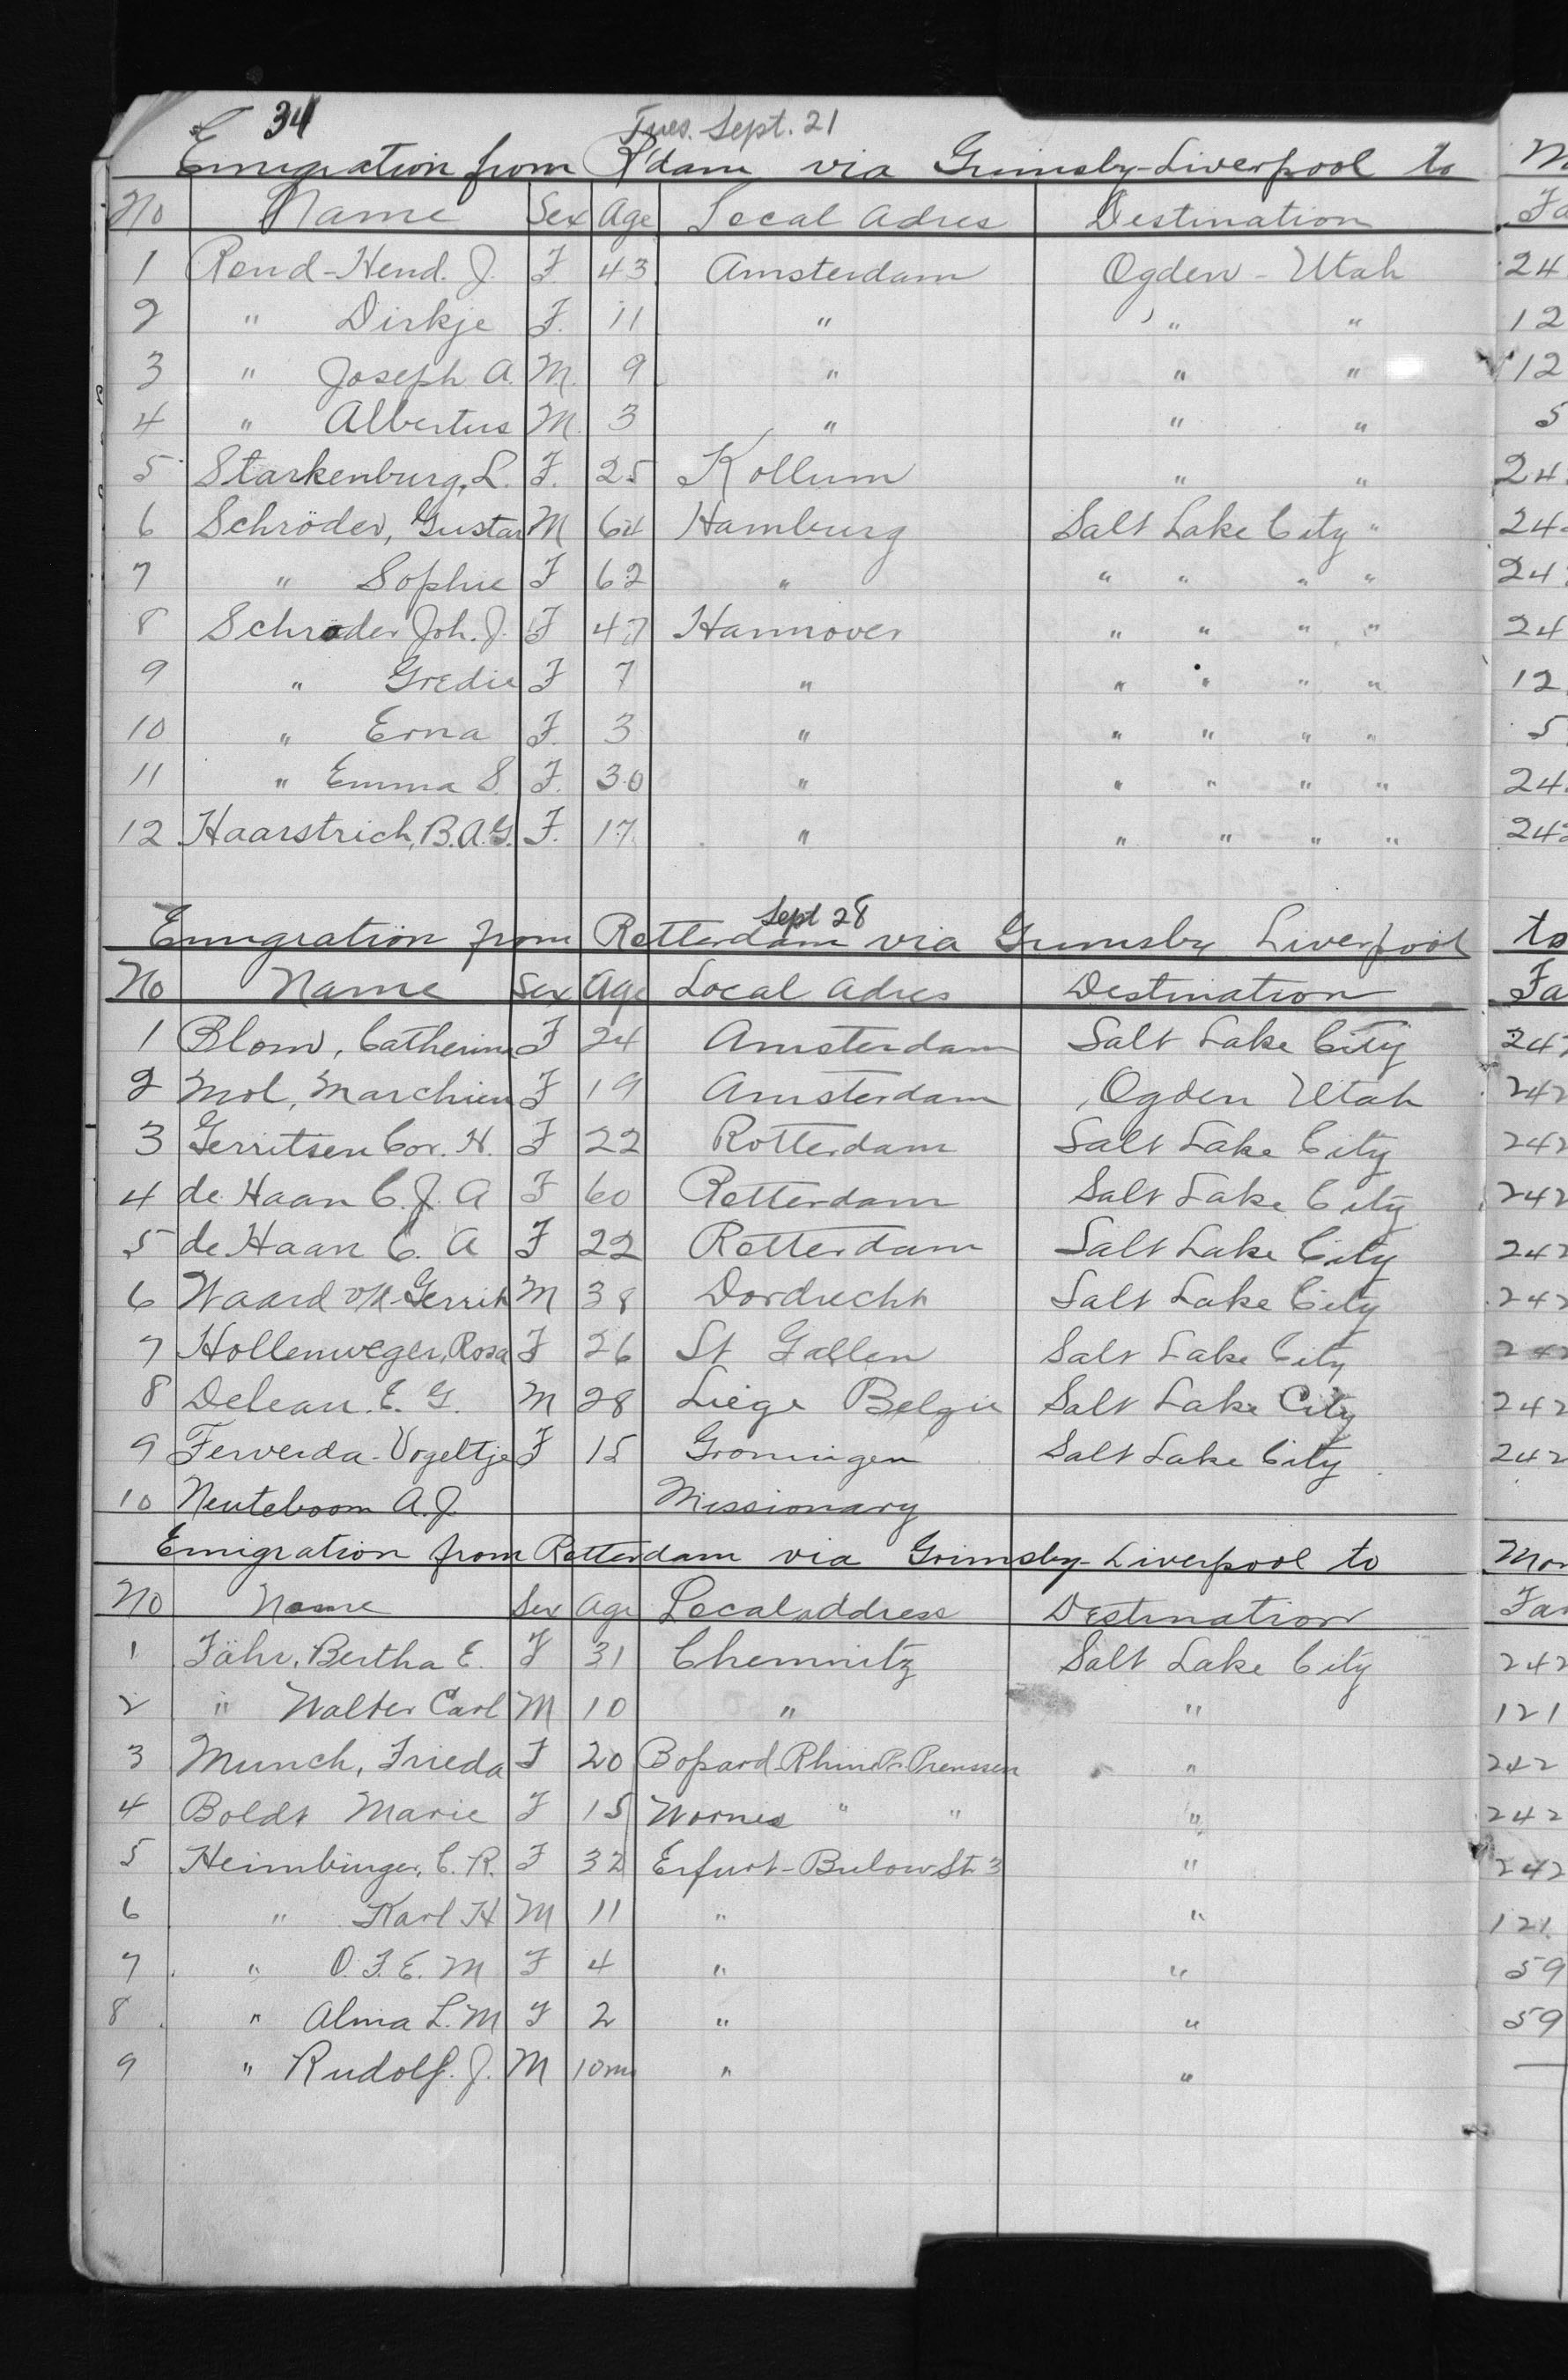 34 Tues. Sept. 21
Emigration from R'dam via Grimsby-Liverpool to
No Name Sex Age Local Adres Destination Fa
1 Rond-Hend. J. F. 43 Amsterdam Ogden - Utah 24
2 " Dirkje F. 11 " " " 12
3 " Joseph A. M. 9 " " " 12
4 " Albertus M. 3 " " " 5
5 Starkenburg, L. F. 25 Kollum " " 24
6 Schröder, Gustav M 64 Hamburg Salt Lake City " 24
7 " Sophie F 62 " " " " " 24
8 Schroder Joh. J. F 47 Hannover " " " " 24
9 " Gredie F 7 " " " " " 12
10 " Erna F. 3 " " " " " 5
11 " Emma S. F. 30 " " " " " 24
12 Haarstrich, B.A.G. F. 17 " " " " " 242
Sept 28
Emigration from Rotterdam via Grimsby Liverpool to
No Name Sex Age Local Adres Destination Fa
1 Blom, Catherina F 24 Amsterdam Salt Lake City 242
2 Mol, Marchien F 19 Amsterdam Ogden Utah 242
3 Gerritsen Cor. H. F 22 Rotterdam Salt Lake City 242
4 de Haan C. J. A F 60 Rotterdam Salt Lake City 242
5 de Haan C. A F 22 Rotterdam Salt Lake City 242
6 Waard v/d Gerrit M 38 Dordrecht Salt Lake City 242
7 Hollenweger, Rosa F 26 St Gallen Salt Lake City 242
8 Delean. E. G. M 28 Liege Belgie Salt Lake City 242
9 Ferwerda - Vogeltje F 15 Groningen Salt Lake City 242
10 Neuteboom A. J. Missionary
Emigration from Rotterdam via Grimsby-Liverpool to Mon
No Name Sex Age Local address Destination Fa
1 Fähr, Bertha E. F 31 Chemnitz Salt Lake City 242
2 " Walter Carl M 10 " " 121
3 Munch, Frieda F 20 Bopard Rhine Pr. Preussen " 242
4 Boldt Marie F 15 " " " 242
5 Heimburger, C. R. F 32 Erfurt-Bulow St. 3 " 242
6 " Karl H M 11 " " 121
7 " O. F. E. M F 4 " " 59
8 " Alma L. M F 2 " " 59
9 " Rudolf. J. M 10m " "